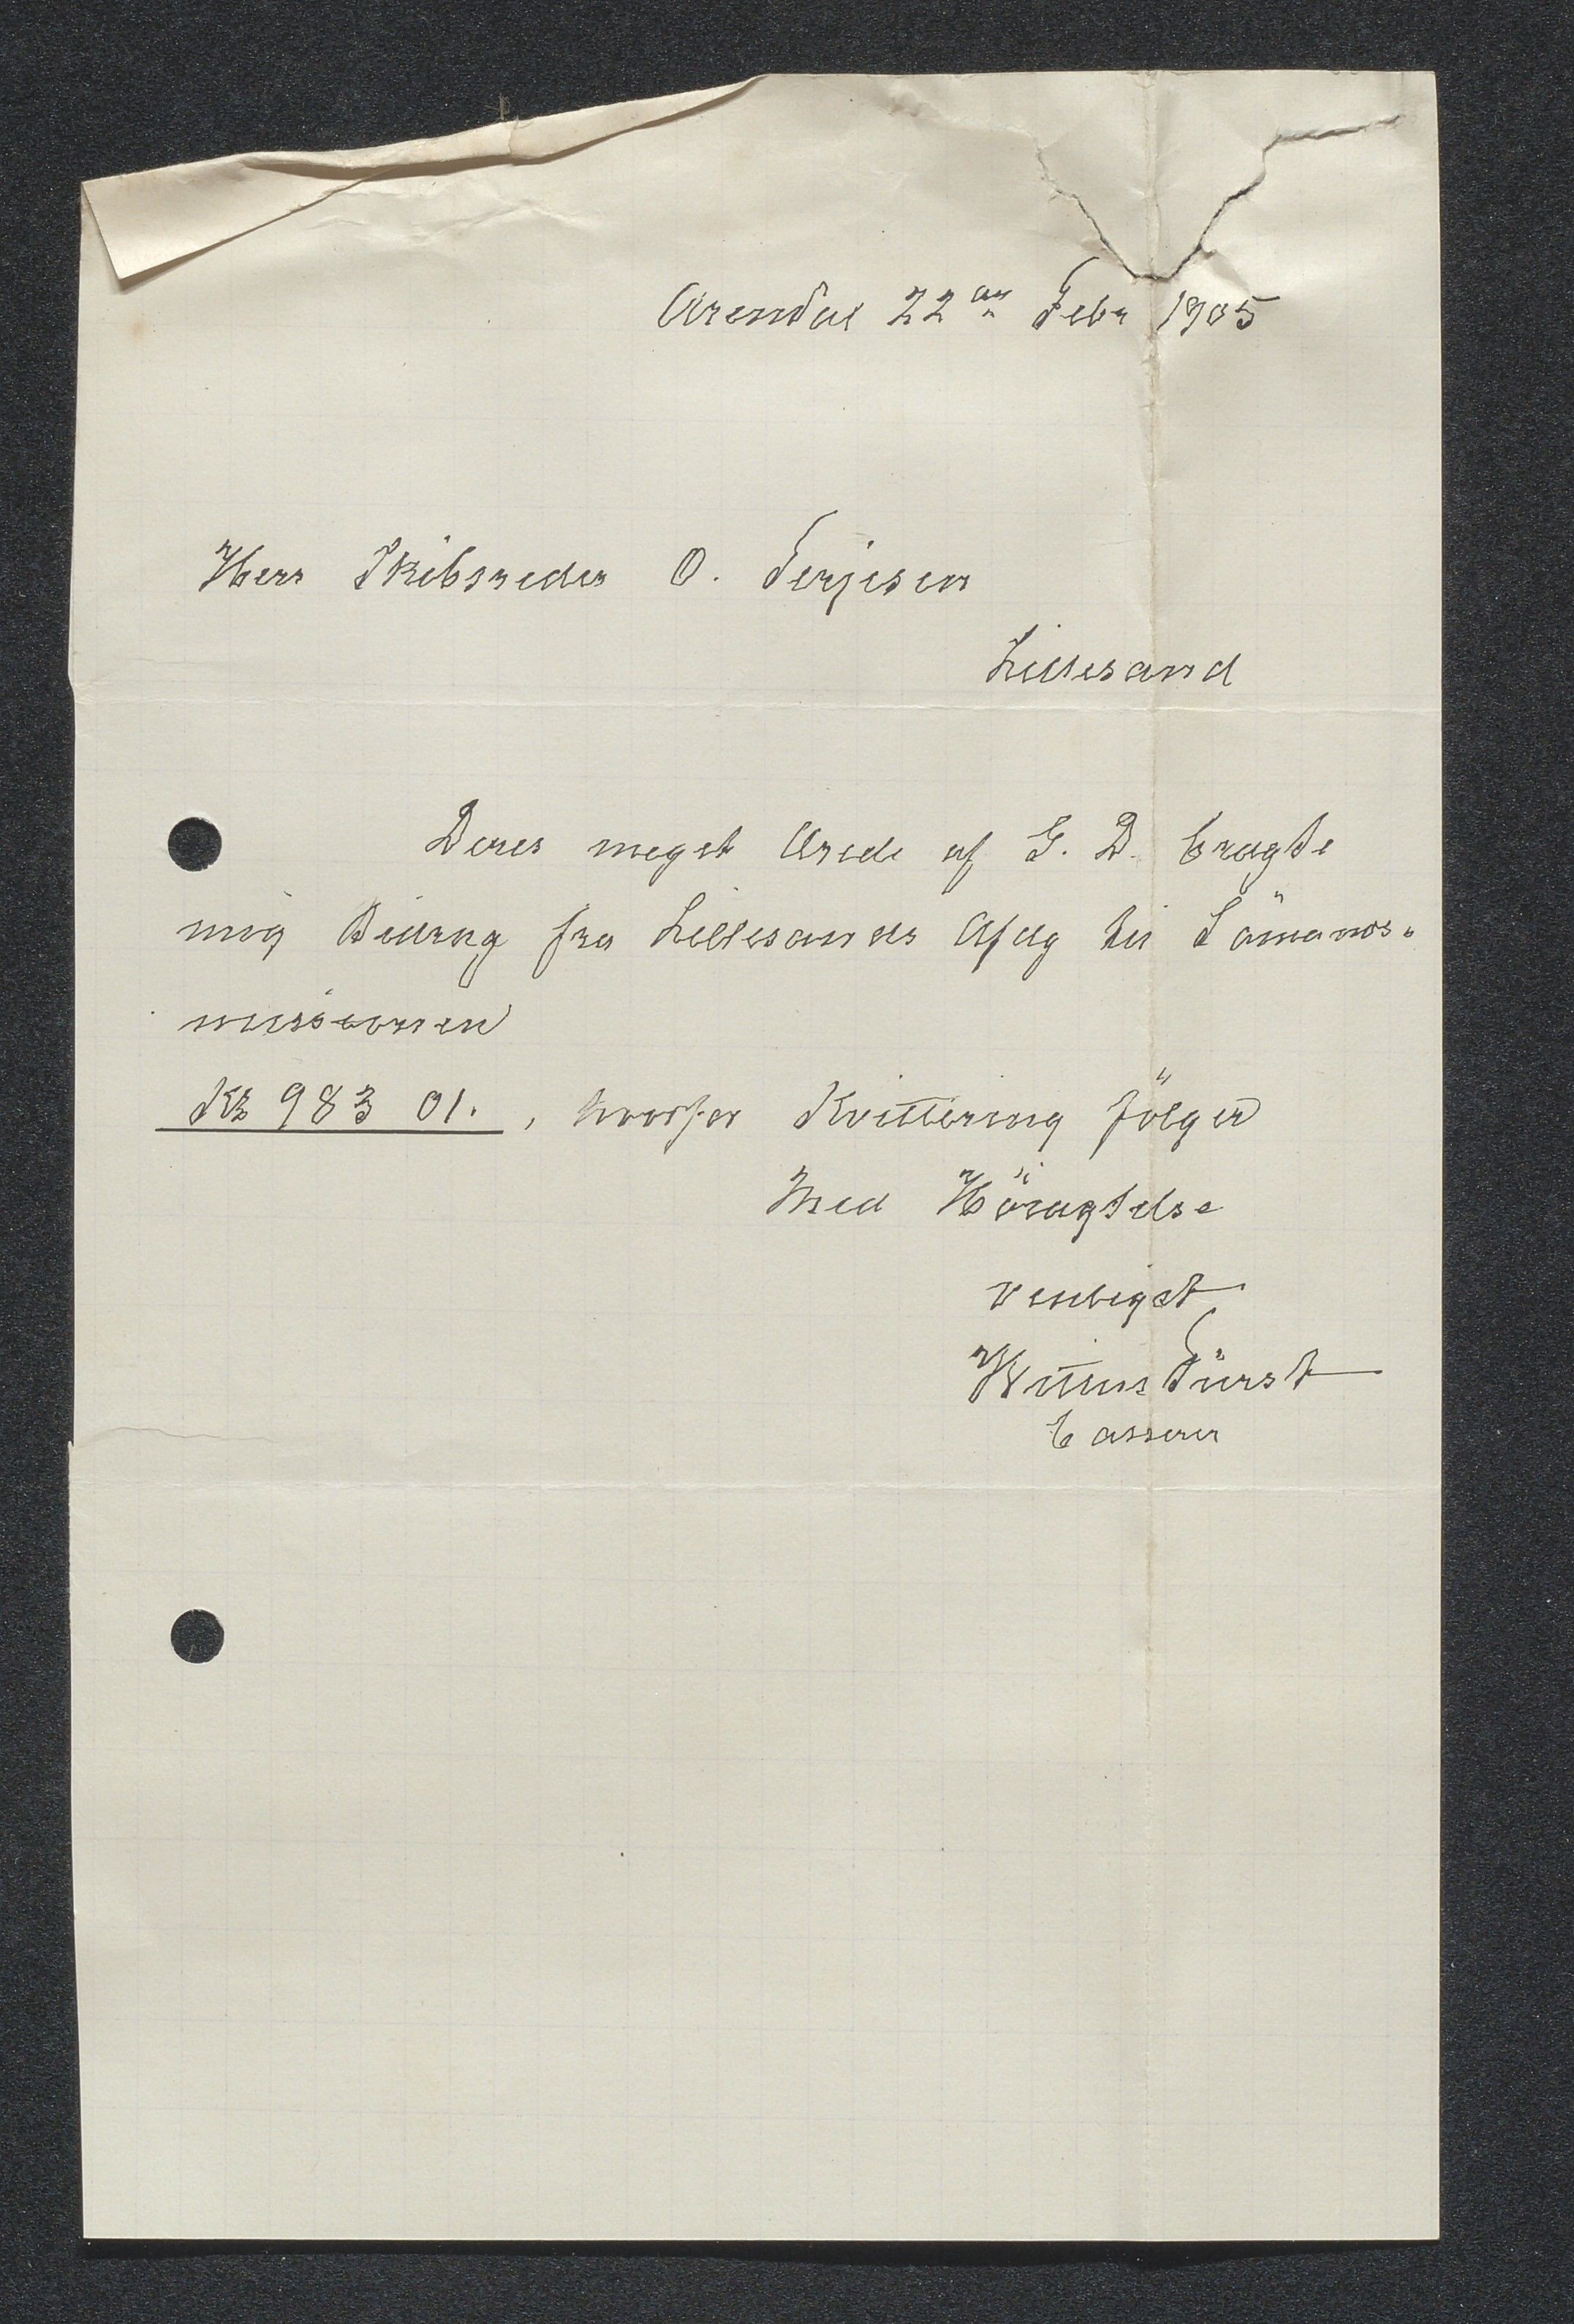 Arendal 22de Febr 1905
Herr Skibsreder O. Terjesen
Lillesand
Deres meget Ærede af G. D. bragte
mig Bidrag fra Lillesands Afdg til Sömands-
missionen
Kr 983 01. , hvorfor Kvittering fölger
Med Höiagtelse
venligst
Fürst
Casserer